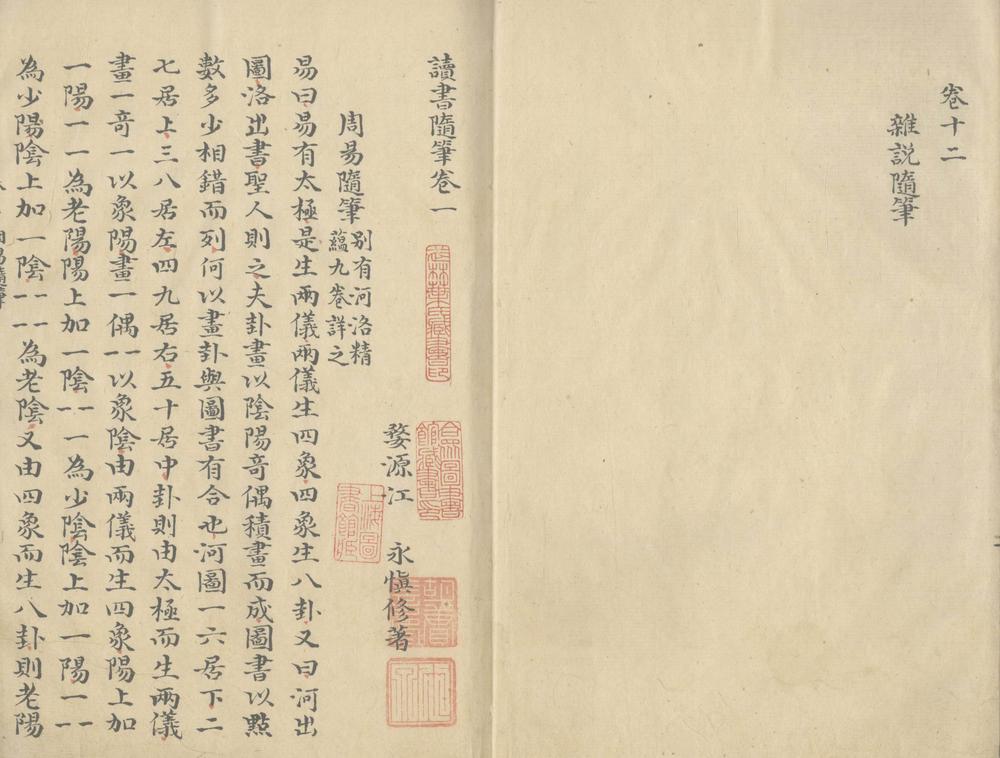 卷十二
雜説隨筆
讀書隨筆卷一
周易隨筆 别有河洛精
蘊九卷詳之
婺源江 永愼修著
易曰易有太極是生兩儀兩儀生四象四象生八卦又曰河出
圖洛出書聖人則之夫卦畫以陰陽竒偶積畫而成圖書以㸃
數多少相錯而列何以畫卦與圖書有合也河圖一六居下二
七居上三八居左四九居右五十居中卦則由太極而生兩儀
畫一竒一以象陽畫一偶⚋以象陰由兩儀而生四象陽上加
一陽一一為老陽陽上加一陰⚋一為少陰陰上加一陽一⚋
為少陽陰上加一陰⚋⚋為老陰又由四象而生八卦則老陽
上海圖書館藏